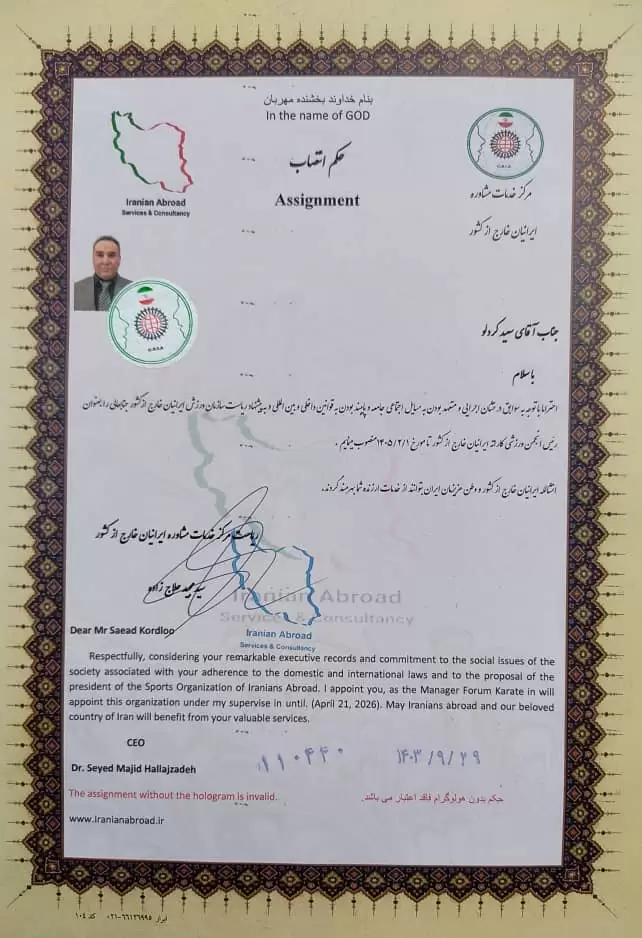 بنام خداوند بخشنده مهربان
In the name of GOD
حکم انتصاب
Assignment
Iranian Abroad
Services & Consultancy
O.R.I.A
مرکز خدمات مشاوره
ایرانیان خارج از کشور
جناب آقای سعید کردلو
باسلام
احتراما با توجه به سوابق درخشان اجرایی و متعهد بودن به مسایل اجتماعی جامعه و پایبند بودن به قوانین داخلی و بین المللی و به پیشنهاد ریاست سازمان ورزش ایرانیان خارج از کشور جنابعالی را بعنوان
رئیس انجمن ورزشی کاراته ایرانیان خارج از کشور تا مورخ ۱۴۰۵/۲/۱ منصوب مینمایم .
انشالله ایرانیان خارج از کشور و وطن عزیزمان ایران بتوانند از خدمات ارزنده شما بهره مند گردند.
ریاست مرکز خدمات مشاوره ایرانیان خارج از کشور
سید مجید حلاج زاده
Iranian Abroad
Services & Consultancy
Dear Mr Saead Kordloo
Iranian Abroad
Services & Consultancy
Respectfully, considering your remarkable executive records and commitment to the social issues of the
society associated with your adherence to the domestic and international laws and to the proposal of the
president of the Sports Organization of Iranians Abroad. I appoint you, as the Manager Forum Karate in will
appoint this organization under my supervise in until. (April 21, 2026). May Iranians abroad and our beloved
country of Iran will benefit from your valuable services.
CEO
Dr. Seyed Majid Hallajzadeh
۱۱۰۴۴۰
۱۴۰۳/۹/۲۹
The assignment without the hologram is invalid.
حکم بدون هولوگرام فاقد اعتبار می باشد.
www.Iranianabroad.ir
ابرار ۶۶۱۲۶۹۹۵-۰۲۱ کد ۱۰۴